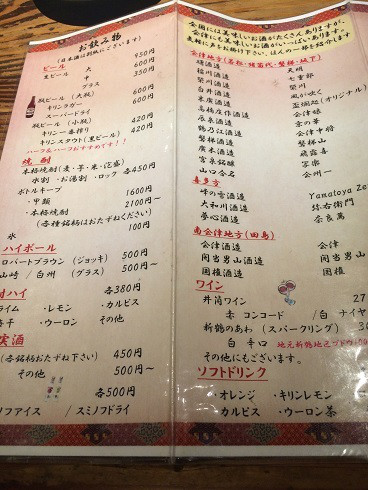 お飲み物
(日本酒は別紙にございます)
ビール 大 950円
生ビール 中 600円
グラス 350円
瓶ビール (大瓶) 600円
キリンラガー
スーパードライ
瓶ビール (小瓶)
キリン一番搾り 420円
キリンスタウト(黒ビール) 420円
ハーフ&ハーフおすすめです!!
焼酎
本格焼酎(麦・芋・米・泡盛)
水割 ・お湯割 ・ロック 各450円
ボトルキープ
・甲類 1600円
・本格焼酎 2100円~
(各種銘柄はおたずねください)
氷 100円
ハイボール
ロバートブラウン (ジョッキ) 500円
山崎 / 白州 (グラス) 500円~
各380円
ライム ・レモン ・カルピス
・ウーロン その他
(各銘柄おたずね下さい) 450円
その他 500円~
各500円
ノフアイス / スミノフドライ
全国には美味しいお酒がたくさんありますが、
会津にも美味しいお酒がいっぱいあります。
是非に多をお掛け下さい。ほんの一部を紹介します
会津地方(若松・猪苗代・磐梯・坂下)
曙酒造 天明
稲川酒造 七重郎
榮川酒造 榮川
白井酒造 風が吹く
末廣酒造
高橋庄作酒造 会津娘
辰泉酒造 京の華
鶴乃江酒造 会津中将
磐梯酒造 磐梯山
廣木酒造 飛露喜
宮泉銘醸 寫樂
山口合名 会州一
喜多方
峰の雪酒造 Yamatoya Ze
大和川酒造 弥右衛門
夢心酒造 奈良萬
南会津地方(田島)
会津酒造 会津
開当男山酒造 開当男山
国権酒造 国権
ワイン
井筒ワイン 27
赤 コンコード /白 ナイヤ
新鶴のあわ (スパークリング) 30
白 辛口 地元新鶴地区ブドウ
その他にもございます。
ソフトドリンク
・オレンジ ・キリンレモン
カルピス ・ウーロン茶